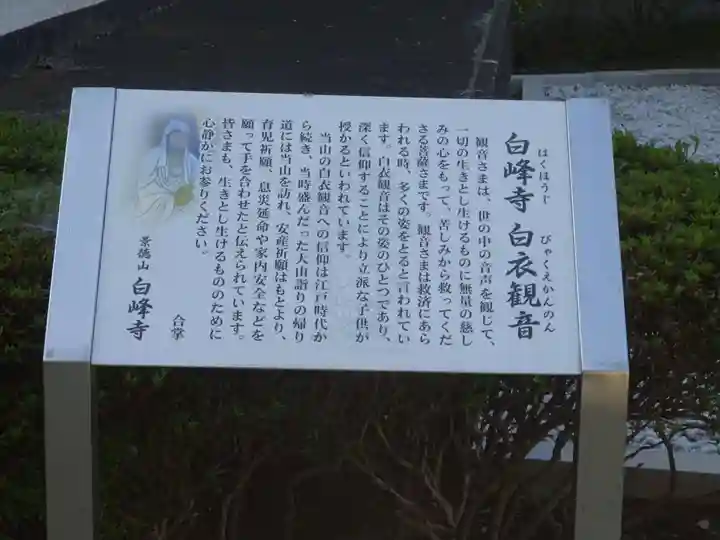 白峰寺 白衣観音
はくほうじ びゃくえかんのん
観音さまは、世の中の音声を観じて、
一切の生きとし生けるものに無量の慈し
みの心をもって、苦しみから救ってくだ
さる菩薩さまです。観音さまは救済にあら
われる時、多くの姿をとると言われてい
ます。白衣観音はその姿のひとつであり、
深く信仰することにより立派な子供が
授かるといわれています。
当山の白衣観音への信仰は江戸時代か
ら続き、当時盛んだった大山詣りの帰り
道には当山を訪れ、安産祈願はもとより、
育児祈願、息災延命や家内安全などを
願って手を合わせたと伝えられています。
皆さまも、生きとし生けるもののために
心静かにお参りください。
合掌
景徳山 白峰寺